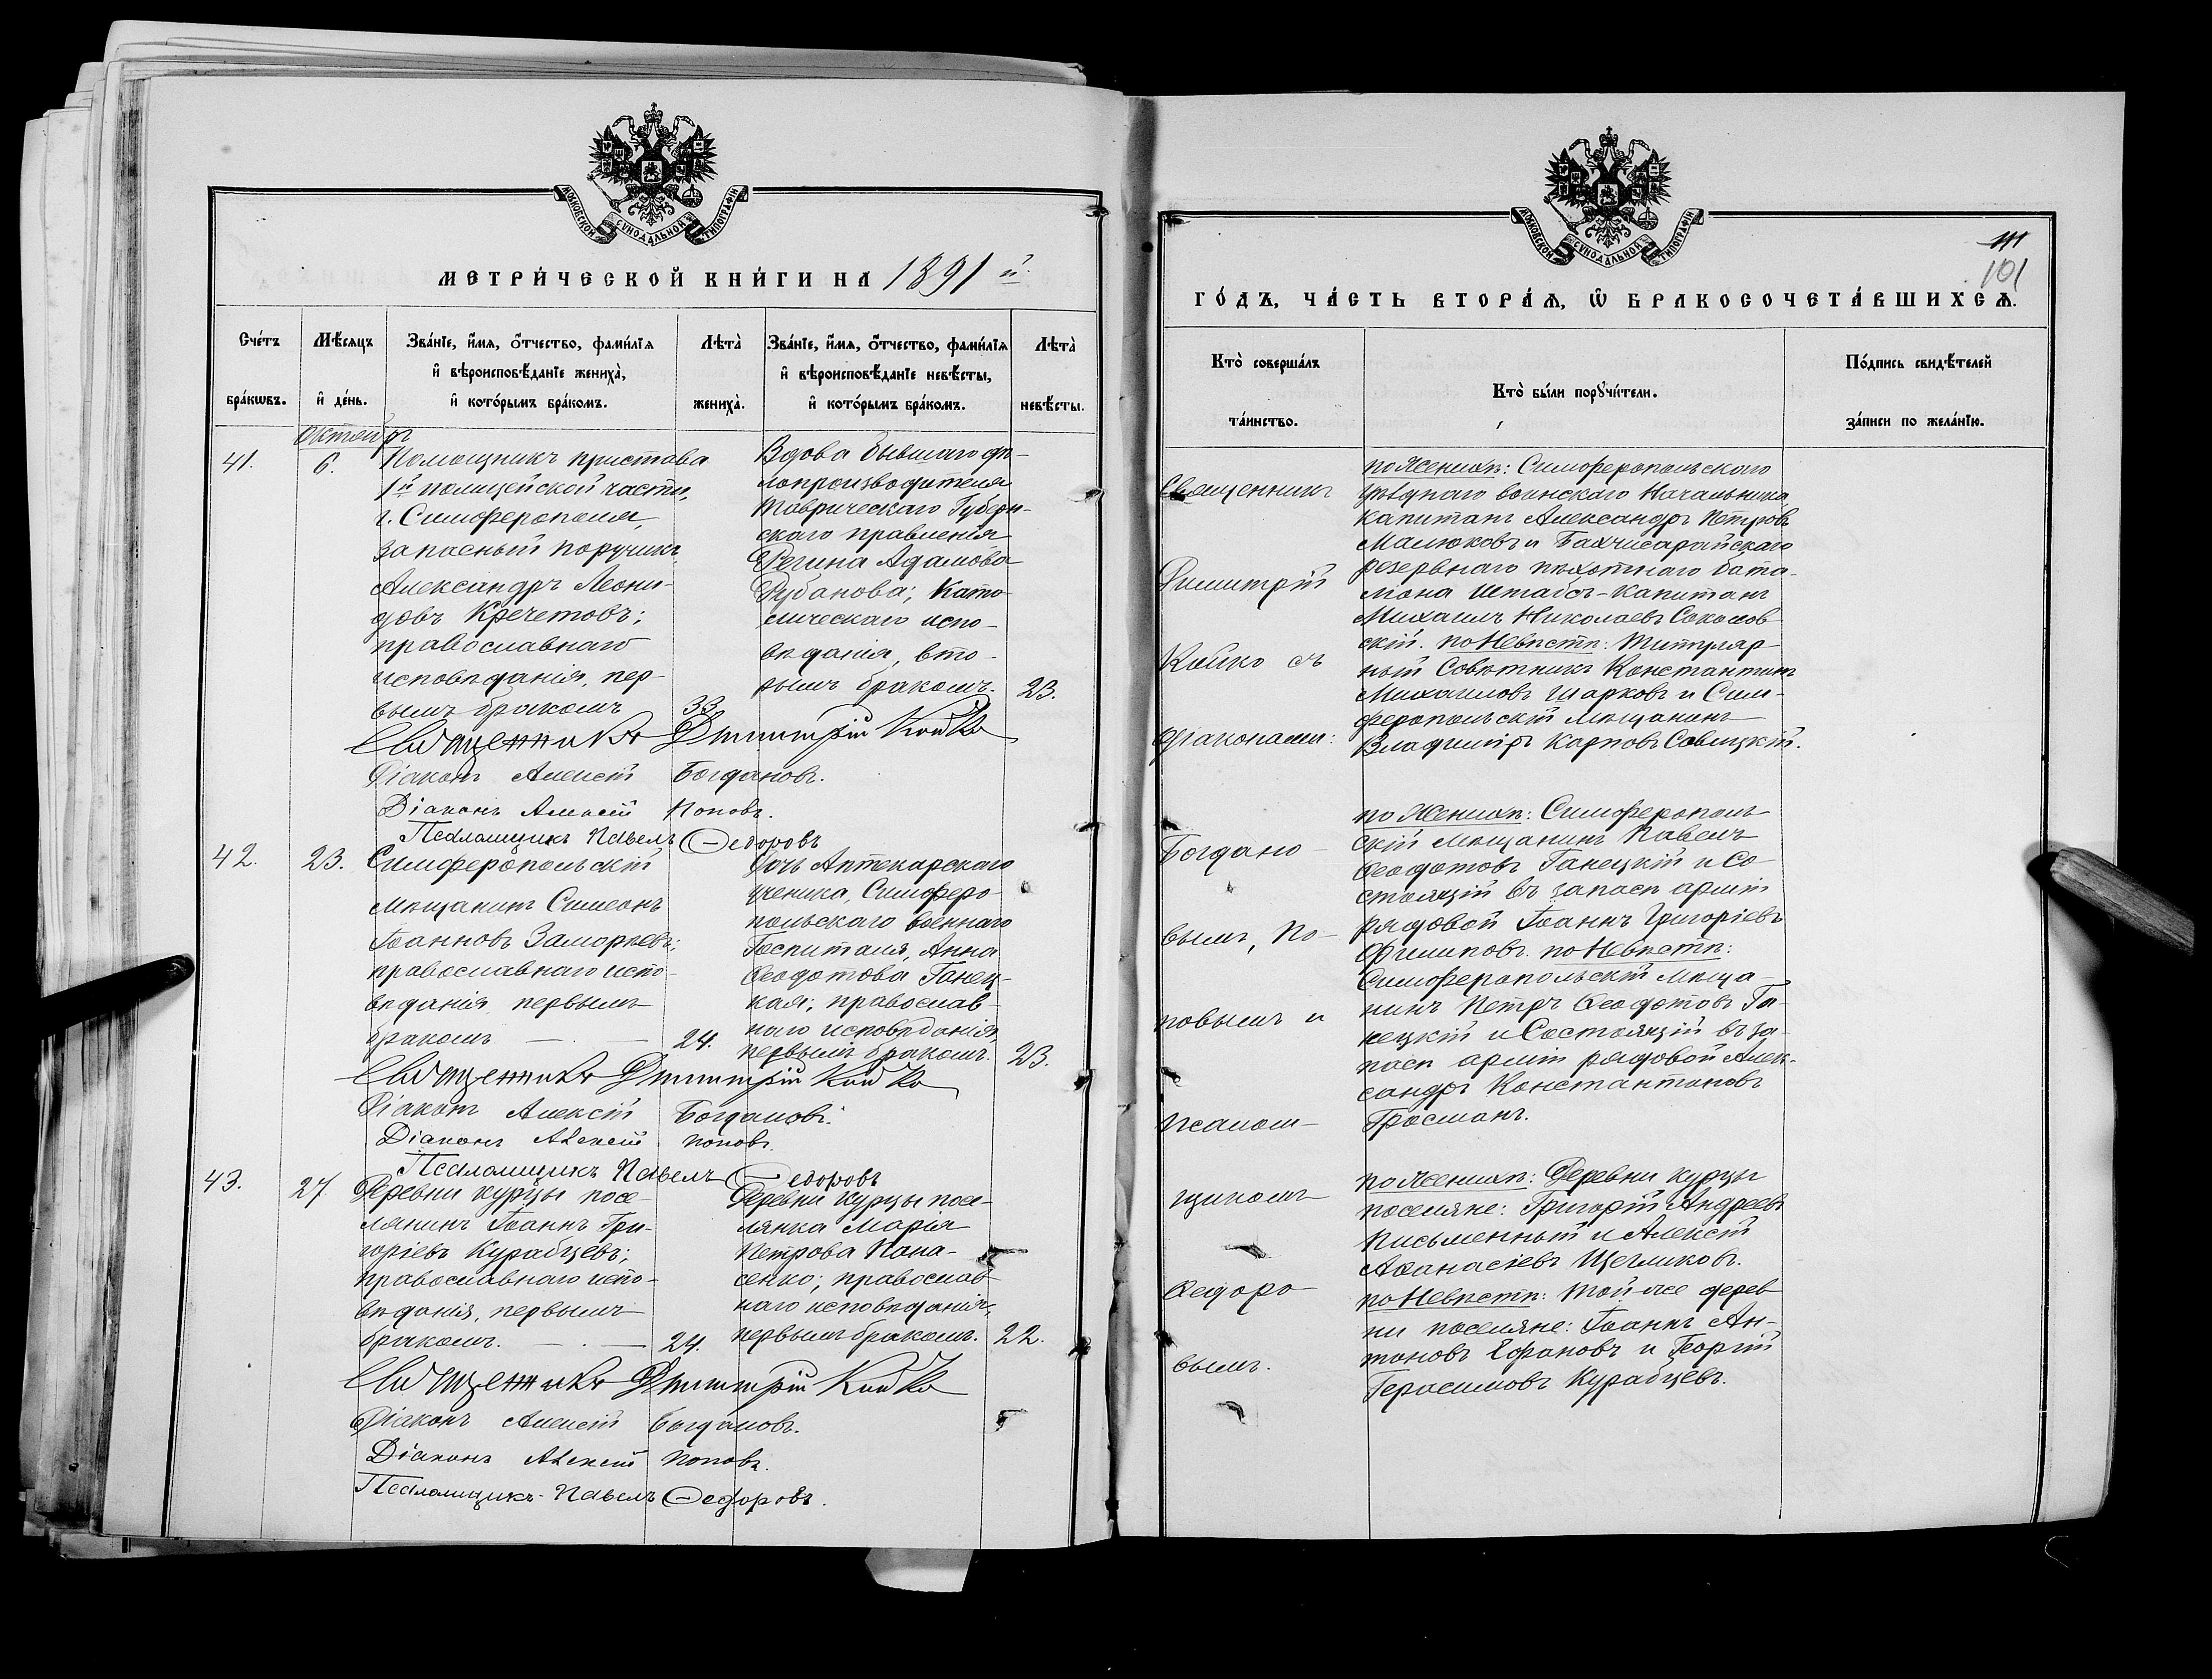 МОСКОВСКОЙ СѴНОДАЛЬНОЙ ТИПОГРАФІИ
МЕТРИ́ЧЕСКОЙ КНИ́ГИ НА 1891 й
Сче́тъ бра́кѡвъ.
Мѣ́сяцъ и҆ де́нь.
Зва́нїе, и҆́мя, ѻ҆́тчество, фами́лїя
и҆ вѣроисповѣ́данїе жениха̀,
и҆ кото́рымъ бра́комъ.
Лѣта̀ жениха̀.
Зва́нїе, и҆́мя, ѻ҆́тчество, фами́лїя
и҆ вѣроисповѣ́данїе невѣ́сты,
и҆ кото́рымъ бра́комъ.
Лѣта̀ невѣ́сты.
Октябрь
41.
6.
Помощникъ пристава
1й полицейской части,
г. Симферополя,
запасный поручикъ
Александръ Леони-
довъ Кречетовъ;
православнаго
исповѣданія, пер-
вымъ бракомъ
33
Вдова бывшаго дѣ-
лопроизводителя
Таврическаго Губерн-
скаго правленія
Регина Адамова
Рубанова; Като
лическаго испо-
вѣданія, вто-
рымъ бракомъ.
23.
Священникъ Димитрій Койко
Діаконъ Алексій Богдановъ.
Діаконъ Алексій Поповъ.
Псаломщикъ Павелъ Ѳедоровъ
42.
23.
Симферопольскій
мѣщанинъ Симеонъ
Іоанновъ Заморяевъ;
православнаго испо-
вѣданія первымъ
бракомъ — . —
24.
Дочь Аптекарскаго
ученика, Симферо
польскаго военнаго
Госпиталя, Анна
Ѳеодотова Ганец-
кая; православ-
наго исповѣданія,
первымъ бракомъ.
23.
Священникъ Димитрій Койко
Діаконъ Алексій Богдановъ.
Діаконъ Алексій Поповъ.
Псаломщикъ Павелъ Ѳедоровъ
43.
27.
Деревни Курцы посе-
лянинъ Іоаннъ Гри-
горіевъ Курабцевъ;
православнаго испо-
вѣданія, первымъ
бракомъ. — . —
24.
Деревни Курцы посе-
лянка Марія
Петрова Пана-
сенко; православ-
наго исповѣданія,
первымъ бракомъ.
22.
Священникъ Димитрій Койко
Діаконъ Алексій Богдановъ.
Діаконъ Алексій Поповъ.
Псаломщикъ Павелъ Ѳедоровъ.
МОСКОВСКОЙ СѴНОДАЛЬНОЙ ТИПОГРАФІИ
111
101
ГО́ДЪ, ЧА́СТЬ ВТОРА́Ѧ, Ѽ БРАКОСОЧЕТА́ВШИХСѦ.
Кто̀ соверша́лъ
та́инство.
Кто̀ бы́ли порꙋчи́тели.
По́дпись свидѣ́телей
за́писи по жела́нїю.
Священникъ
Димитрій
Койко съ
діаконами:
Богдано-
вымъ, По-
повымъ и
псалом-
щикомъ
Ѳедоро-
вымъ.
по Женихѣ: Симферопольскаго
уѣзднаго воинскаго Начальника
Капитанъ Александръ Петровъ
Малюковъ и Бахчисарайскаго
резервнаго пѣхотнаго бата-
ліона Штабсъ-Капитанъ
Михаилъ Николаевъ Соколов
скій. по Невѣстѣ: Титуляр-
ный Совѣтникъ Константинъ
Михаиловъ Шарковъ и Сим-
феропольскій мѣщанинъ
Владиміръ Карповъ Савицкій.
по Женихѣ: Симферополь-
скій мѣщанинъ Павелъ
Ѳеодотовъ Ганецкій и Со-
стоящій въ запасѣ арміи
рядовой Іоаннъ Григоріевъ
Филиповъ. по Невѣстѣ:
Симферопольскій мѣща-
нинъ Петръ Ѳеодотовъ Га-
нецкій и Состоящій въ за-
пасѣ арміи рядовой Алек-
сандръ Константиновъ
Гросманъ.
по Женихѣ: Деревни Курцы
поселяне: Григорій Андреевъ
Письменный и Алексій
Аѳанасіевъ Щегликовъ.
по Невѣстѣ: той-же дерев
ни поселяне: Іоаннъ Ан-
тоновъ Ефановъ и Георгій
Герасимовъ Курабцевъ.